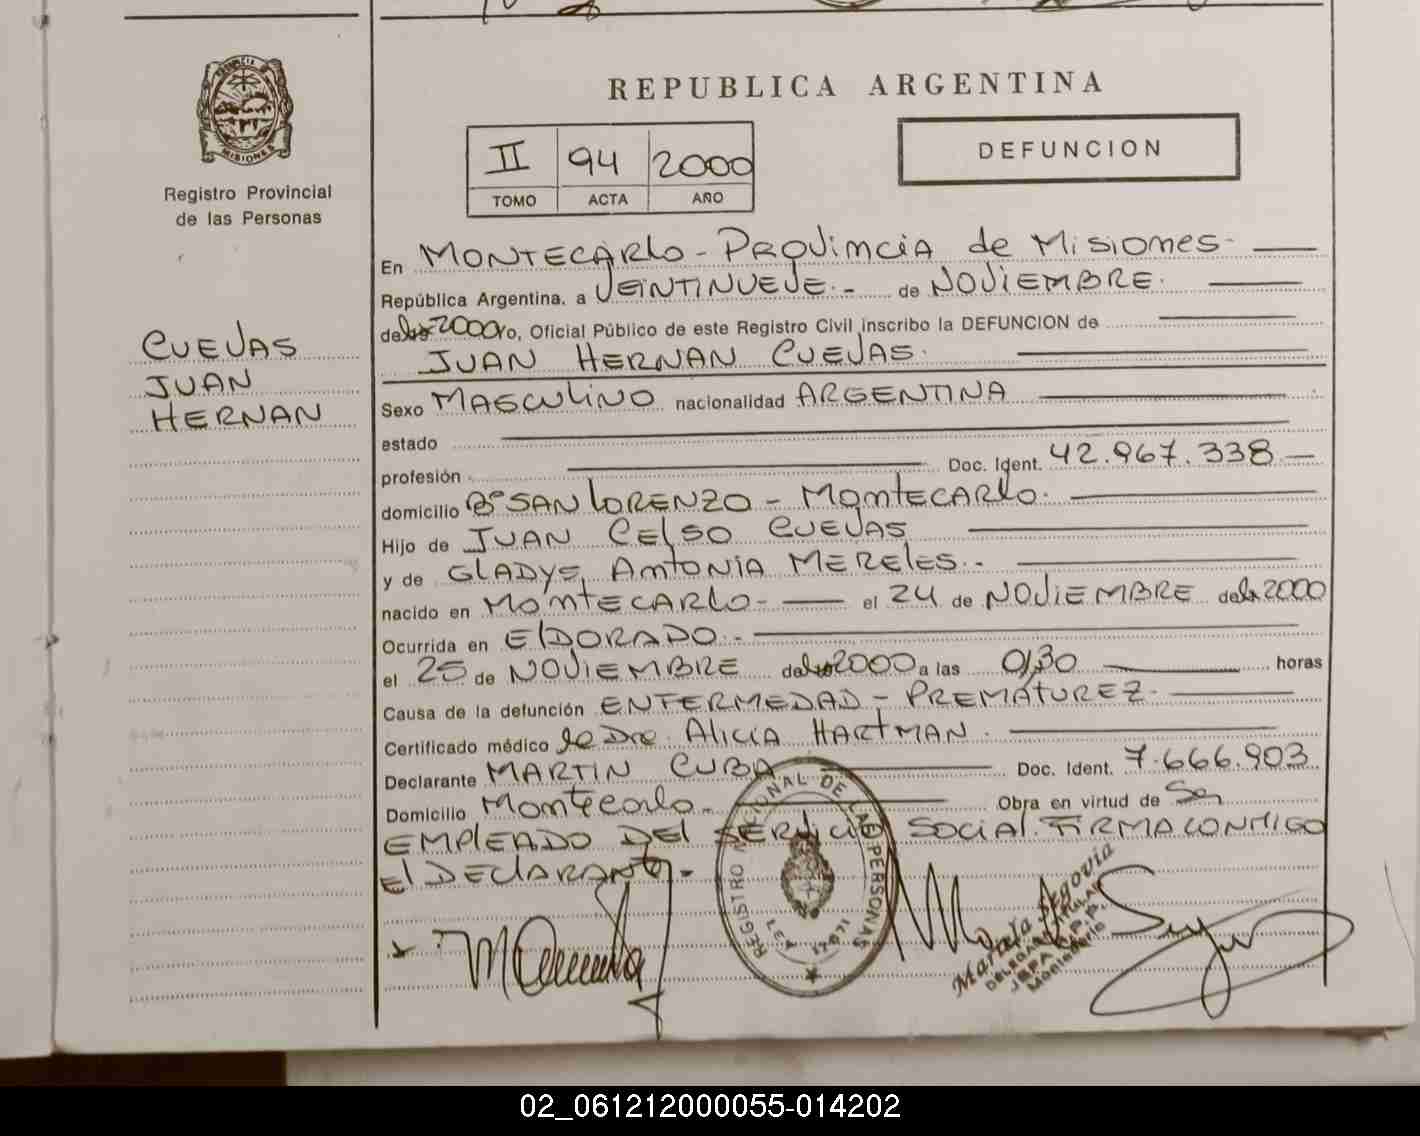 REPUBLICA ARGENTINA
PROVINCIA
MISIONES
Registro Provincial
de las Personas
II 94 2000
TOMO ACTA AÑO
DEFUNCION
CUEVAS
JUAN
HERNAN
En MONTECARLO - PROVINCIA de MISIONES -
República Argentina, a VEINTINUEVE.- de NOVIEMBRE.
del 2000 yo, Oficial Público de este Registro Civil inscribo la DEFUNCION de
JUAN HERNAN CUEVAS.
Sexo MASCULINO nacionalidad ARGENTINA
estado
profesión Doc. Ident. 42.967.338
domicilio B° SAN LORENZO - MONTECARLO.
Hijo de JUAN CELSO CUEVAS
y de GLADYS ANTONIA MERELES.-
nacido en MONTECARLO- el 24 de NOVIEMBRE de 2000
Ocurrida en ELDORADO.-
el 25 de NOVIEMBRE de 2000 a las 0,30 horas
Causa de la defunción ENFERMEDAD - PREMATUREZ-
Certificado médico de Dra. ALICIA HARTMAN.
Declarante MARTIN CUBA Doc. Ident. 7.666.903
Domicilio Montecarlo.- Obra en virtud de Ser
EMPLEADO DEL SERVICIO SOCIAL. FIRMA CONMIGO
El DECLARANTE.-
REGISTRO NACIONAL DE LAS PERSONAS
LEY 17671
María Segovia
DELEGADA TITULAR
Montecarlo
02_061212000055-014202